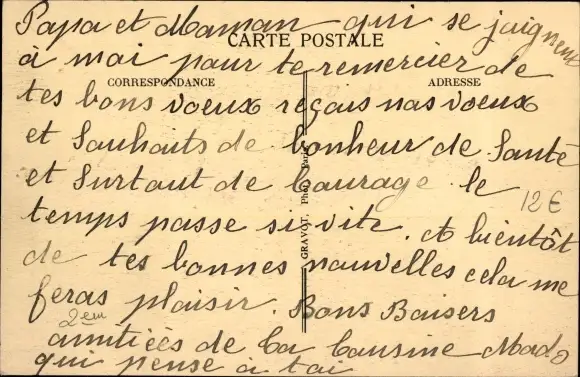 Papa et Maman qui se joignent
CARTE POSTALE
à moi pour te remercier de
CORRESPONDANCE
ADRESSE
tes bons voeux reçois nos voeux
et Souhaits de bonheur de Santé
et Surtout de Courage le
12€
temps passe si vite. et bientôt
de tes bonnes nouvelles cela me
feras plaisir. Bons Baisers
2em
amitiées de ta Cousine Mado
qui pense à toi
GRAVOT, Phot. Paris